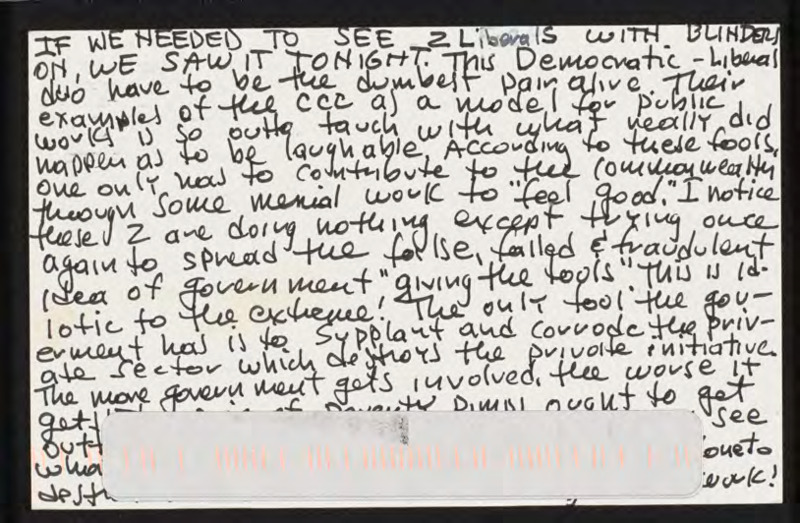 IF WE NEEDED TO SEE 2 Liberals WITH BLINDERS
ON, WE SAW IT TONIGHT. This Democratic-Liberal
duo have to be the dumbest pair alive. Their
examples of the CCC as a model for public
works is so outta touch with what really did
happen as to be laughable. According to these fools,
one only has to contribute to the commonwealth
through some menial work to "feel good." I notice
these 2 are doing nothing except trying once
again to spread the false, failed & fraudulent
idea of government "giving the tools" This is id-
iotic to the extreme! The only tool the gov-
erment has is to sypplant and corrode the priv-
ate sector which destroys the private initiative.
The more government gets involved, the worse it
gets ought to get
outt see
wha oneto
destr work!